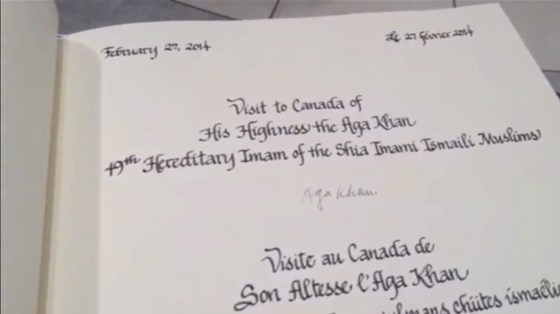 February 27, 2014
Le 27 février 2014
Visit to Canada of
His Highness the Aga Khan
49th Hereditary Imam of the Shia Imami Ismaili Muslims
Aga Khan.
Visite au Canada de
Son Altesse l'Aga Khan
chiites